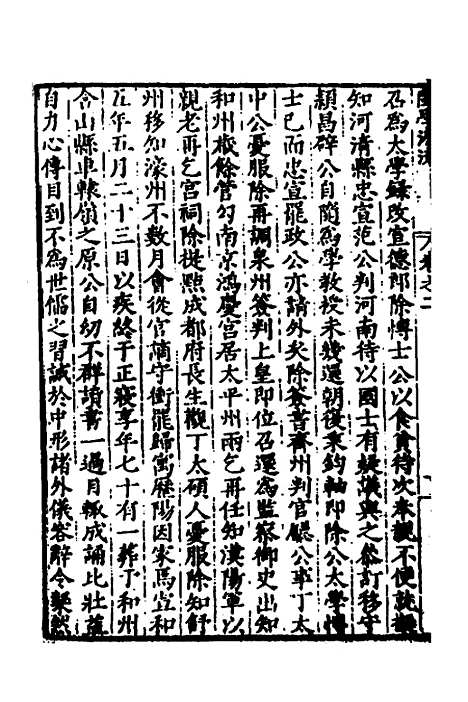 召爲太學錄改宣德郎除博士公以食貧待次奉親不便就擬
知河清縣忠宣范公判河南待以國士有疑議與之叅訂移守
穎昌辟公自隨爲學教授未幾還朝復秉鈞軸即除公太學博
士已而忠宣罷政公亦請外矣除簽書齊州判官廳公事丁太
中公憂服除再調泉州簽判上皇即位召還爲監察御史出知
和州檄除管勾南京鴻慶宮居太平州兩乞再任知漢陽軍以
親老再乞宮祠除提㸃成都府長生觀丁太碩人憂服除知舒
州移知濠州不數月會從官謫守衝罷歸寓歷陽因家焉宣和
五年五月二十三日以疾終于正寢享年七十有一葬于和州
含山縣車轅嶺之原公自幼不群讀書一過目輒成誦比壯益
自力心傳目到不爲世儒之習誠於中形諸外儀容辭令粲然
卷之二